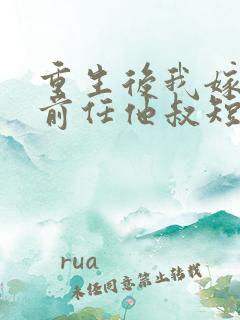 重生後我嫁
前任他叔短
rua
未任同意禁止转载